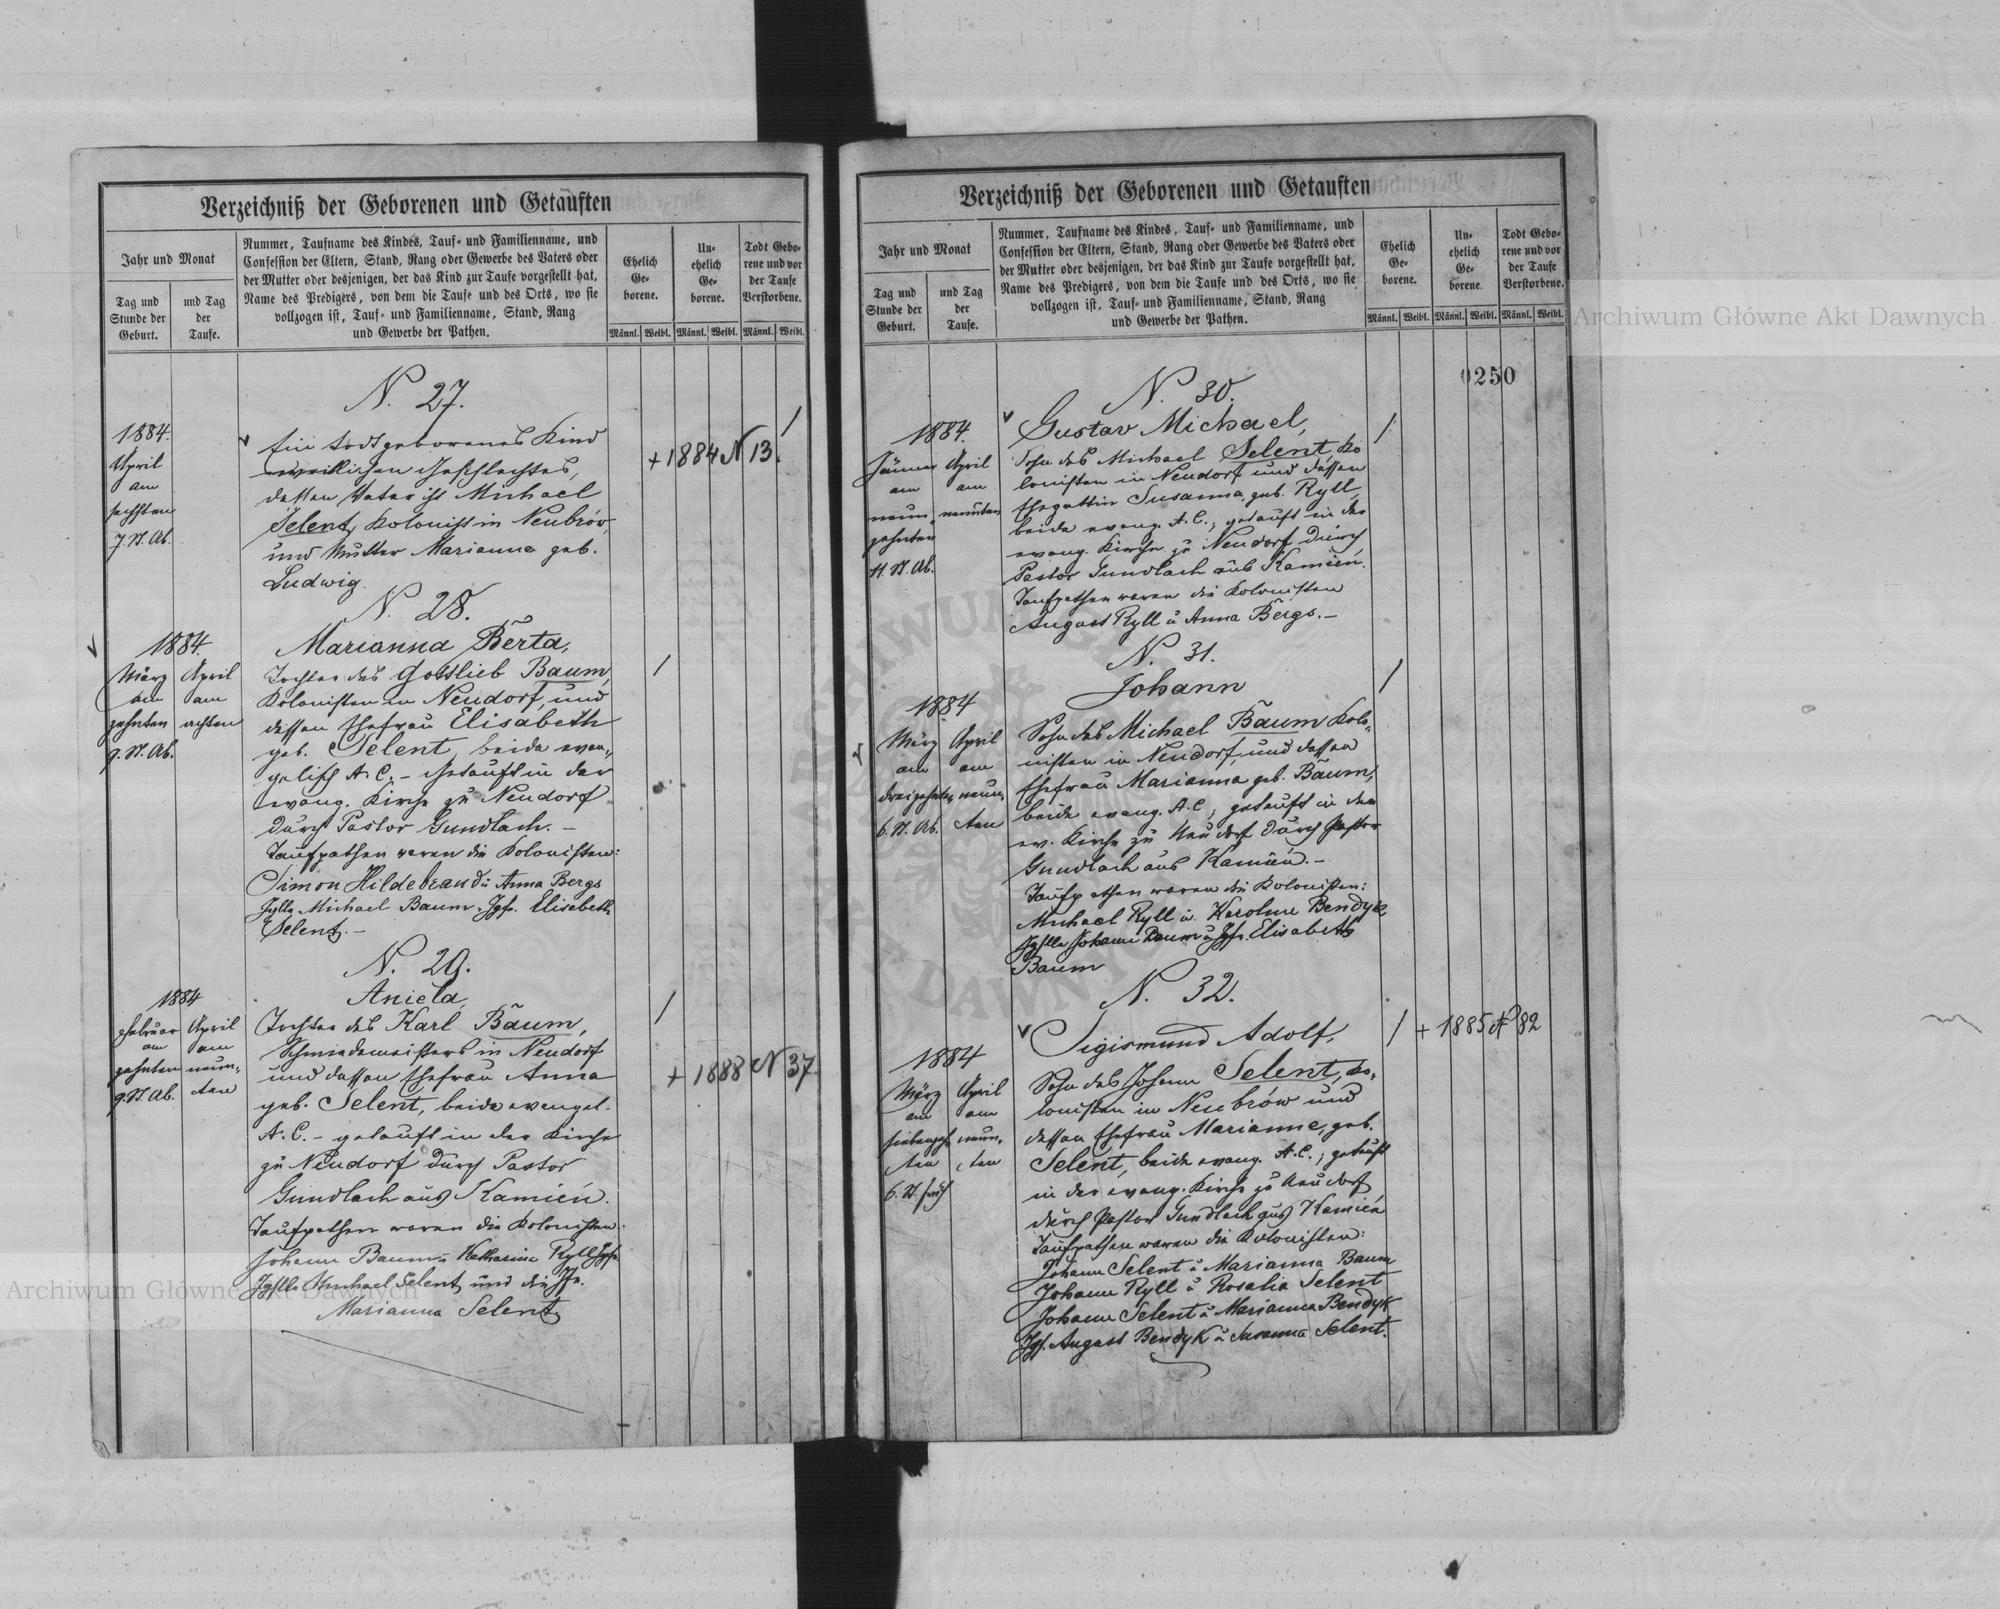 Verzeichniß der Geborenen und Getauften
Jahr und Monat
Tag und
Stunde der
Geburt.
und Tag
der
Taufe.
Nummer, Taufname des Kindes, Tauf- und Familienname, und
Confession der Eltern, Stand, Rang oder Gewerbe des Vaters oder
der Mutter oder desjenigen, der das Kind zur Taufe vorgestellt hat,
Name des Predigers, von dem die Taufe und des Orts, wo sie
vollzogen ist, Tauf- und Familienname, Stand, Rang
und Gewerbe der Pathen.
Ehelich
Ge-
borene.
Un-
ehelich
Ge-
borene.
Todt Gebo-
rene und vor
der Taufe
Verstorbene.
Männl. Weibl. Männl. Weibl. Männl. Weibl.
N. 27.
1884.
April
am
sechsten
7 St. Ab.
Ein todtgeborenes Kind
weiblichen Geschlechtes,
dessen Vater ist Michael
Selent, Kolonist in Neubrów,
und Mutter Marianna geb.
Ludwig.
+ 1884 N 13.
N. 28.
1884.
März April
am am
zehnten achten
9. St. Ab.
Marianna Berta,
Tochter des Gottlieb Baum,
Kolonisten in Neudorf, und
dessen Ehefrau Elisabeth
geb. Selent, beide evan„
gelisch A. C. – Getauft in der
evang. Kirche zu Neudorf
durch Pastor Gundlach. –
Taufpathen waren die Kolonisten:
Simon Hildebrand u Anna Bergs
Michael Baum u. Jgfr. Elisabeth
Selent. –
N. 29.
1884
Februar April
am am
zehnten neun„
9. St. Ab. ten
Aniela,
Tochter des Karl Baum,
Schmiedemeisters in Neudorf
und dessen Ehefrau Anna
geb. Selent, beide evangel.
A. C. – getauft in der Kirche
zu Neudorf durch Pastor
Gundlach aus Kamień.
Taufpathen waren die Kolonisten:
Johann Baum u Katharine Ryll
Michael Selent und die Jfr.
Marianna Selent
+ 1888 N 37.
Verzeichniß der Geborenen und Getauften
Jahr und Monat
Tag und
Stunde der
Geburt.
und Tag
der
Taufe.
Nummer, Taufname des Kindes, Tauf- und Familienname, und
Confession der Eltern, Stand, Rang oder Gewerbe des Vaters oder
der Mutter oder desjenigen, der das Kind zur Taufe vorgestellt hat,
Name des Predigers, von dem die Taufe und des Orts, wo sie
vollzogen ist, Tauf- und Familienname, Stand, Rang
und Gewerbe der Pathen.
Ehelich
Ge-
borene.
Un-
ehelich
Ge-
borene.
Todt Gebo-
rene und vor
der Taufe
Verstorbene.
Männl. Weibl. Männl. Weibl. Männl. Weibl.
0250
N. 30.
1884.
Jänner April
am am
neun„ neunten
zehnten
11. St. Ab.
Gustav Michael,
Sohn des Michael Selent, Ko
lonisten in Neudorf und dessen
Ehegattin Susanna, geb. Ryll,
beide evang. A. C., getauft in der
evang. Kirche zu Neudorf durch
Pastor Gundlach aus Kamień.
Taufpathen waren die Kolonisten
August Ryll u Anna Bergs. –
N. 31.
1884
März April
am am
dreizehnten neun„
6. St. Ab. ten
Johann
Sohn des Michael Baum Kolo„
nisten in Neudorf, und dessen
Ehefrau Marianna geb. Baum,
beide evang. A. C., getauft in der
ev. Kirche zu Neudorf durch Pastor
Gundlach aus Kamień. –
Taufpathen waren die Kolonisten:
Michael Ryll u. Karoline Bendyk
Johann Baum u Jgfr. Elisabeth
Baum
N. 32.
1884
März April
am am
siebenzehn neun„
ten ten
6. St. früh
Sigismund Adolf,
Sohn des Johann Selent, Ko„
lonisten in Neubrów und
dessen Ehefrau Marianne, geb.
Selent, beide evang. A. C., getauft
in der evang. Kirche zu Neudorf
durch Pastor Gundlach aus Kamień
Taufpathen waren die Kolonisten:
Johann Selent u Marianna Baum
Johann Ryll u Rosalia Selent
Johann Selent u Marianna Bendyk
Jgs. August Bendyk u Susanna Selent.
+ 1885 N 82
Archiwum Główne Akt Dawnych
Archiwum Główne Akt Dawnych